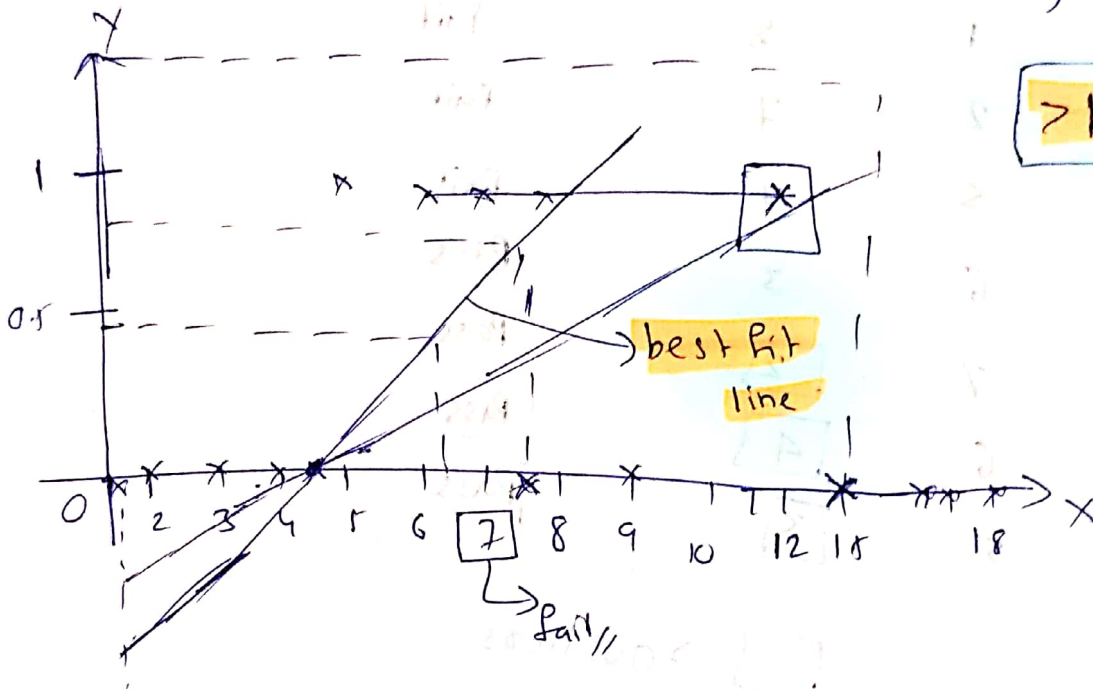 Y
> 1
1
0.5
best fit
line
0 2 3 4 5 6 7 8 9 10 12 15 18 X
fail